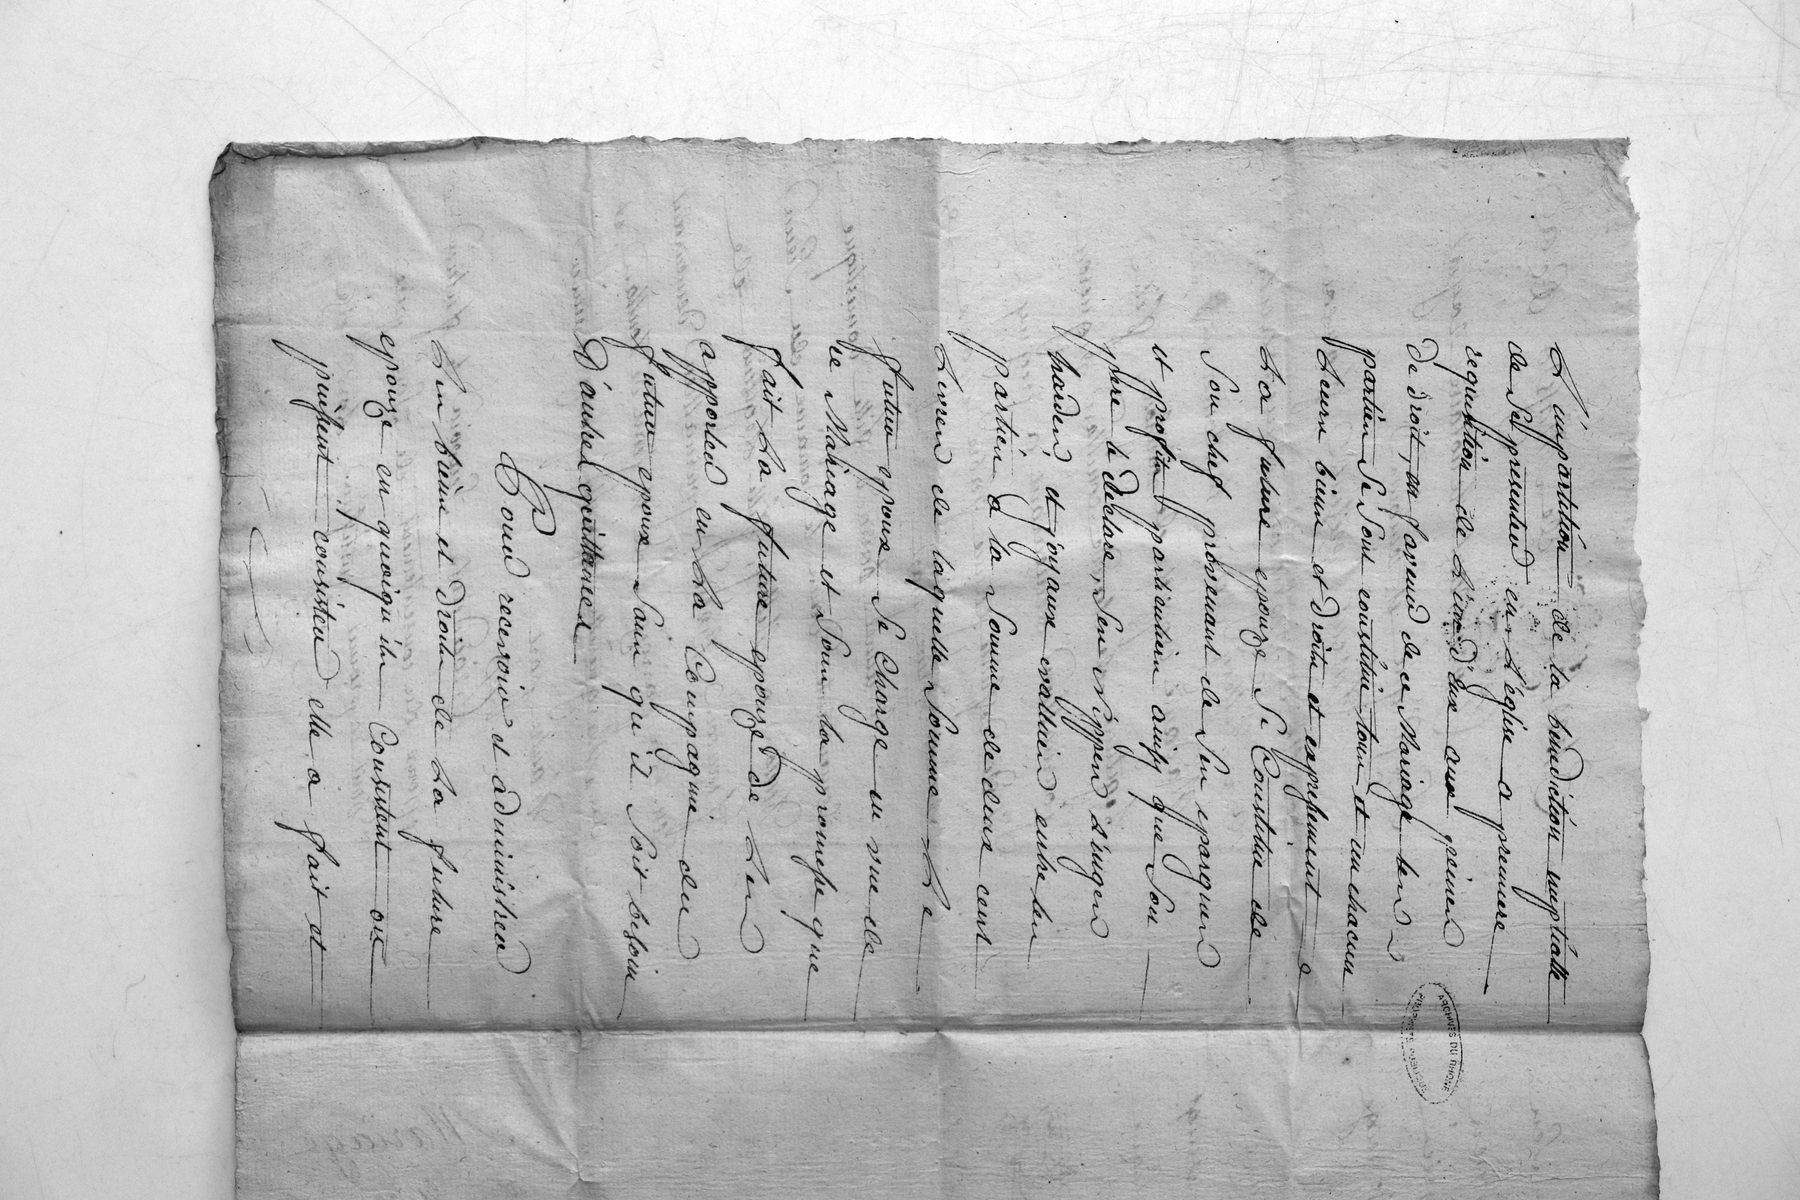 L'impartition de la benediction nuptialle
de Se presenter en L'église a premiere
requisition de L'un d'eux aux peines
De droit, en faveur de ce Mariage les
parties Se Sont constitué tous et un chacun
Leurs biens et Droits et expressement
La future epouze Se Constitue de
Son chef provenant de Ses epargnes
et profits particuliers ainsy que Son
pere le declare, Ses nippes linges
hardes et joyaux evallués entre les
parties a la Somme de deux cent
Livres de laquelle Somme Le
futur epoux Se Charge en vue de
ce Mariage et Sous la promesse que
fait La future epouze de Les
apporter en La Compagnie du
futur epoux Sans qu'il Soit besoin
D'autres quittances
Pour recevoir et administrer
Les biens et Droits de La future
epouze en quoiqu'ils Consistent ou
puissent consister elle a fait et
ARCHIVES DU RHONE